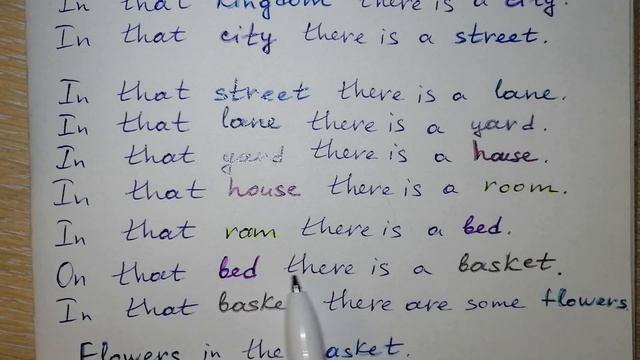 In that kingdom there is a city.
In that city there is a street.
In that street there is a lane.
In that lane there is a yard.
In that yard there is a house.
In that house there is a room.
In that ram there is a bed.
On that bed there is a basket.
In that baske there are some flowers.
Flowers in the asket.